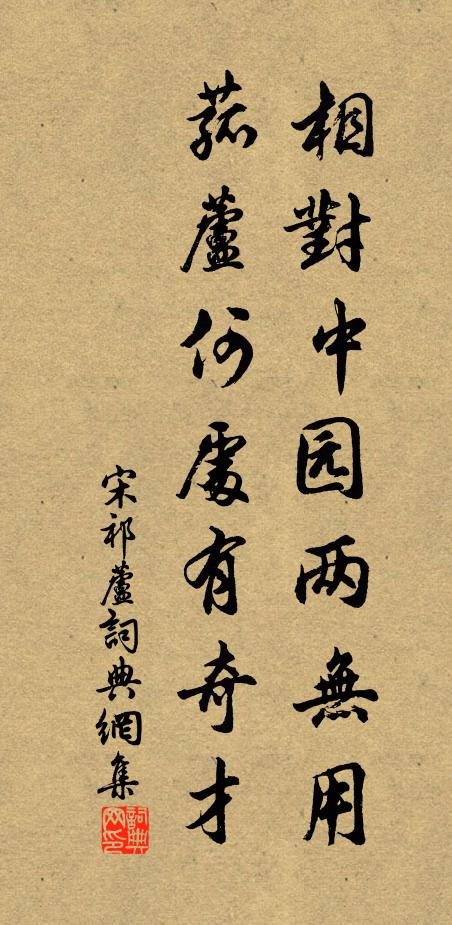 相對中园两無用
菰蘆何處有奇才
宋祁蘆詞典網集
詞典网印